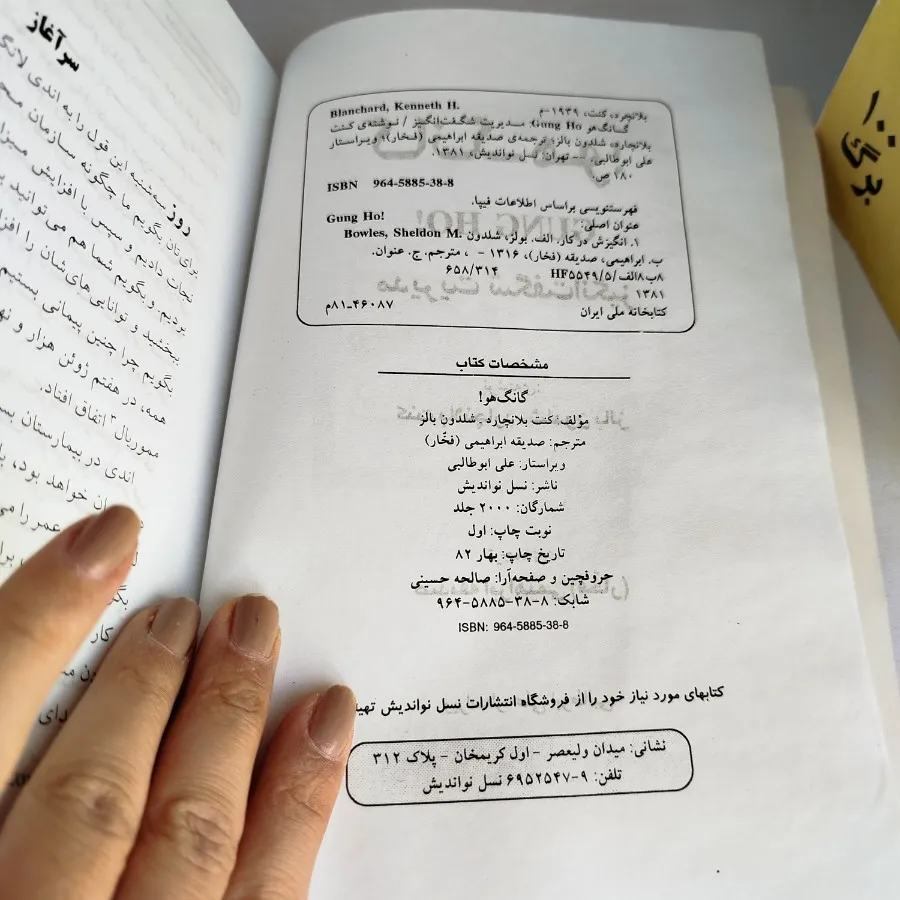 بلانچارد، کنت، ۱۹۳۹-م Blanchard, Kenneth H.
گانگ‌هو Gung Ho: مدیریت شگفت‌انگیز / نوشته‌ی کنت
بلانچارد، شلدون بالز؛ ترجمه‌ی صدیقه ابراهیمی (فخار)؛ ویراستار
علی ابوطالبی. -- تهران: نسل نواندیش، ۱۳۸۱.
۱۸۰ ص.
ISBN 964-5885-38-8
فهرستنویسی براساس اطلاعات فیپا.
عنوان اصلی: Gung Ho!
۱. انگیزش در کار. الف. بولز، شلدون Bowles, Sheldon M.
ب. ابراهیمی، صدیقه (فخار)، ۱۳۱۶ - ، مترجم. ج. عنوان.
۸ب۸الف/۵/HF۵۵۴۹ ۶۵۸/۳۱۴
۱۳۸۱
کتابخانه ملی ایران ۴۶۰۸۷-۸۱م
مشخصات کتاب
گانگ‌هو!
مؤلف: کنت بلانچارد . شلدون بالز
مترجم: صدیقه ابراهیمی (فخّار)
ویراستار: علی ابوطالبی
ناشر: نسل نواندیش
شمارگان: ۲۰۰۰ جلد
نوبت چاپ: اول
تاریخ چاپ: بهار ۸۲
حروفچین و صفحه‌آرا: صالحه حسینی
شابک: ۸-۳۸-۵۸۸۵-۹۶۴
ISBN: 964-5885-38-8
کتابهای مورد نیاز خود را از فروشگاه انتشارات نسل نواندیش
نشانی: میدان ولیعصر - اول کریمخان - پلاک ۳۱۲
تلفن: ۹-۶۹۵۲۵۴۷ نسل نواندیش
سرآغاز
روز سه‌شنبه این قول را به اندی
برای‌تان بگویم ما چگونه سازمان
نجات دادیم و سپس با افزایش
بردیم و بگویم شما هم می‌توانید
ببخشید و توانایی‌های‌شان را
بگویم چرا چنین پیمانی بستیم
همه، در هفتم ژوئن هزار و
موریال ۳ اتفاق افتاد.
اندی در بیمارستان
خواهد بود،
عمر را